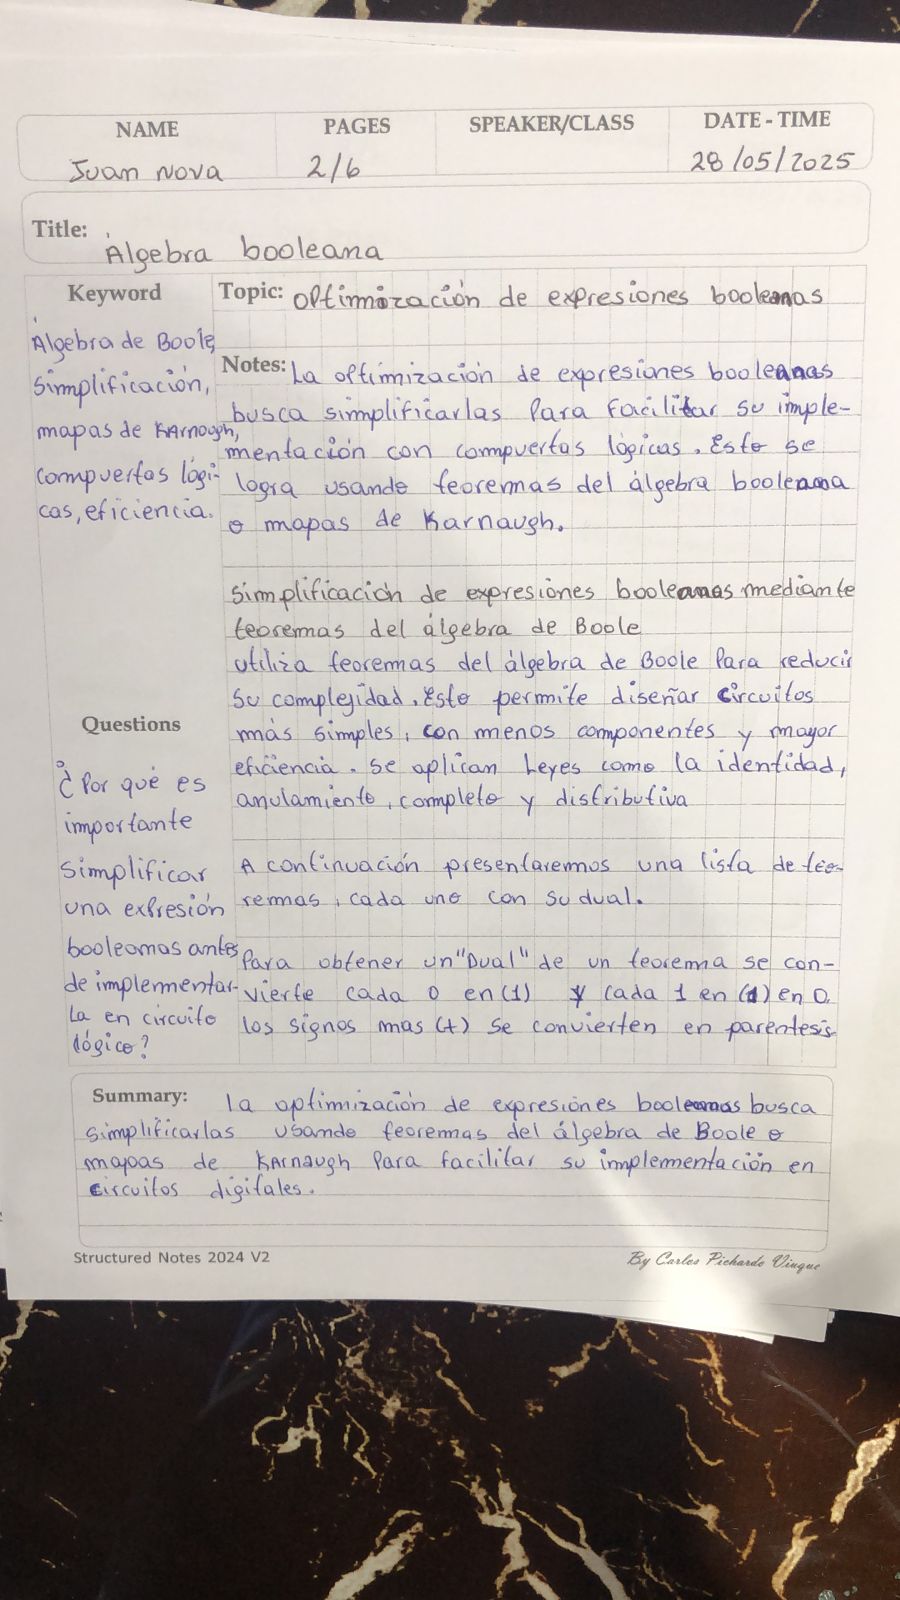 NAME PAGES SPEAKER/CLASS DATE - TIME
Juan Nova 2/6 28/05/2025
Title: Álgebra booleana
Keyword
Álgebra de Boole,
Simplificación,
mapas de KArnough,
compuertas lógi-
cas, eficiencia.
Topic: Optimización de expresiones booleanas
Notes: La optimización de expresiones booleanas
busca simplificarlas Para facilitar su imple-
mentación con compuertas lógicas. Esto se
logra usando teoremas del álgebra booleana
o mapas de Karnaugh.
Simplificación de expresiones booleanas mediante
teoremas del álgebra de Boole
utiliza teoremas del álgebra de Boole Para reducir
su complejidad. Esto permite diseñar circuitos
más simples, con menos componentes y mayor
eficiencia. Se aplican Leyes como la identidad,
anulamiento, completo y distributiva
A continuación presentaremos una lista de teo-
remas, cada uno con su dual.
Para obtener un "Dual" de un teorema se con-
vierte cada 0 en (1) y cada 1 en (1) en 0.
los signos mas (+) se convierten en parentesis
Questions
¿Por qué es
importante
simplificar
una expresión
booleomas antes
de implementar-
La en circuito
lógico?
Summary: La optimización de expresiones booleanas busca
simplificarlas usando teoremas del álgebra de Boole o
mapas de KArnaugh Para facilitar su implementación en
circuitos digitales.
Structured Notes 2024 V2 By Carlos Pichardo Viuque